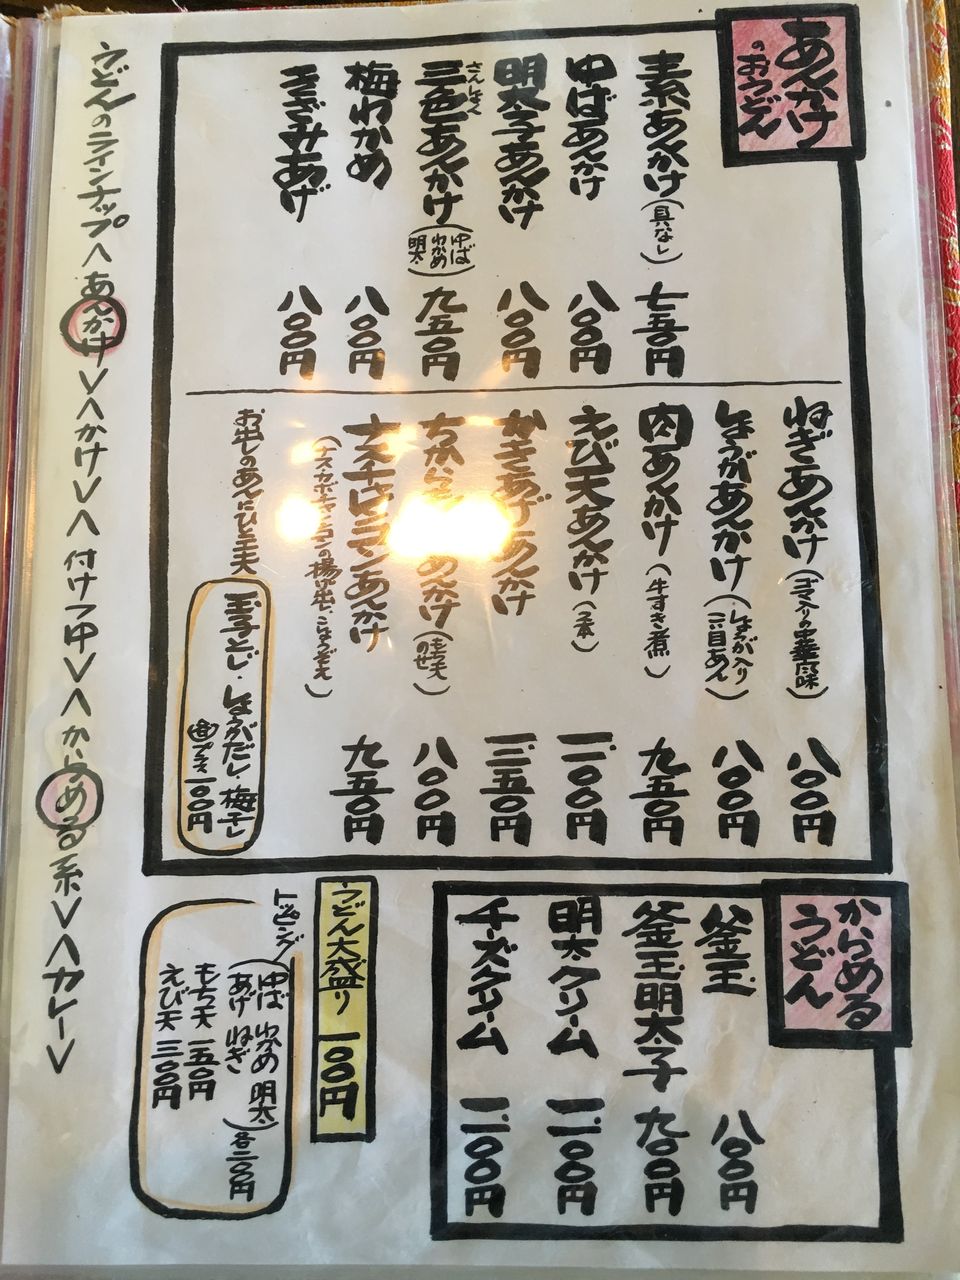 あんかけ
のおうどん
素あんかけ(具なし) 七五〇円
ゆばあんかけ 八〇〇円
明太子あんかけ 八〇〇円
さんしょく
三色あんかけ(ゆば わかめ 明太) 九五〇円
梅わかめ 八〇〇円
きざみあげ 八〇〇円
ねぎあんかけ(ゴマ入りの中華風味) 八〇〇円
しょうがあんかけ(しょうが入りこい目あん) 八〇〇円
肉あんかけ(牛すき煮) 九五〇円
えび天あんかけ(二本) 一、一〇〇円
かきあげあんかけ 一、一五〇円
ちから あんかけ(もち天のせ) 八〇〇円
ナス あんかけ 九五〇円
(ナス、カボチャ、 の揚げ出し、 )
お出しのあんにひと工夫
玉子とじ・しょうがだし・梅干し
プラス一〇〇円
からめる
うどん
釜玉 八〇〇円
釜玉明太子 九〇〇円
明太クリーム 一、一〇〇円
チーズクリーム 一、一〇〇円
うどん大盛り 一〇〇円
トッピング
(ゆば わかめ 明太
あげ ねぎ)各二〇〇円
もち天 一五〇円
えび天 三〇〇円
うどんのラインナップ<あんかけ><かけ><付けつゆ><からめる系><カレー>